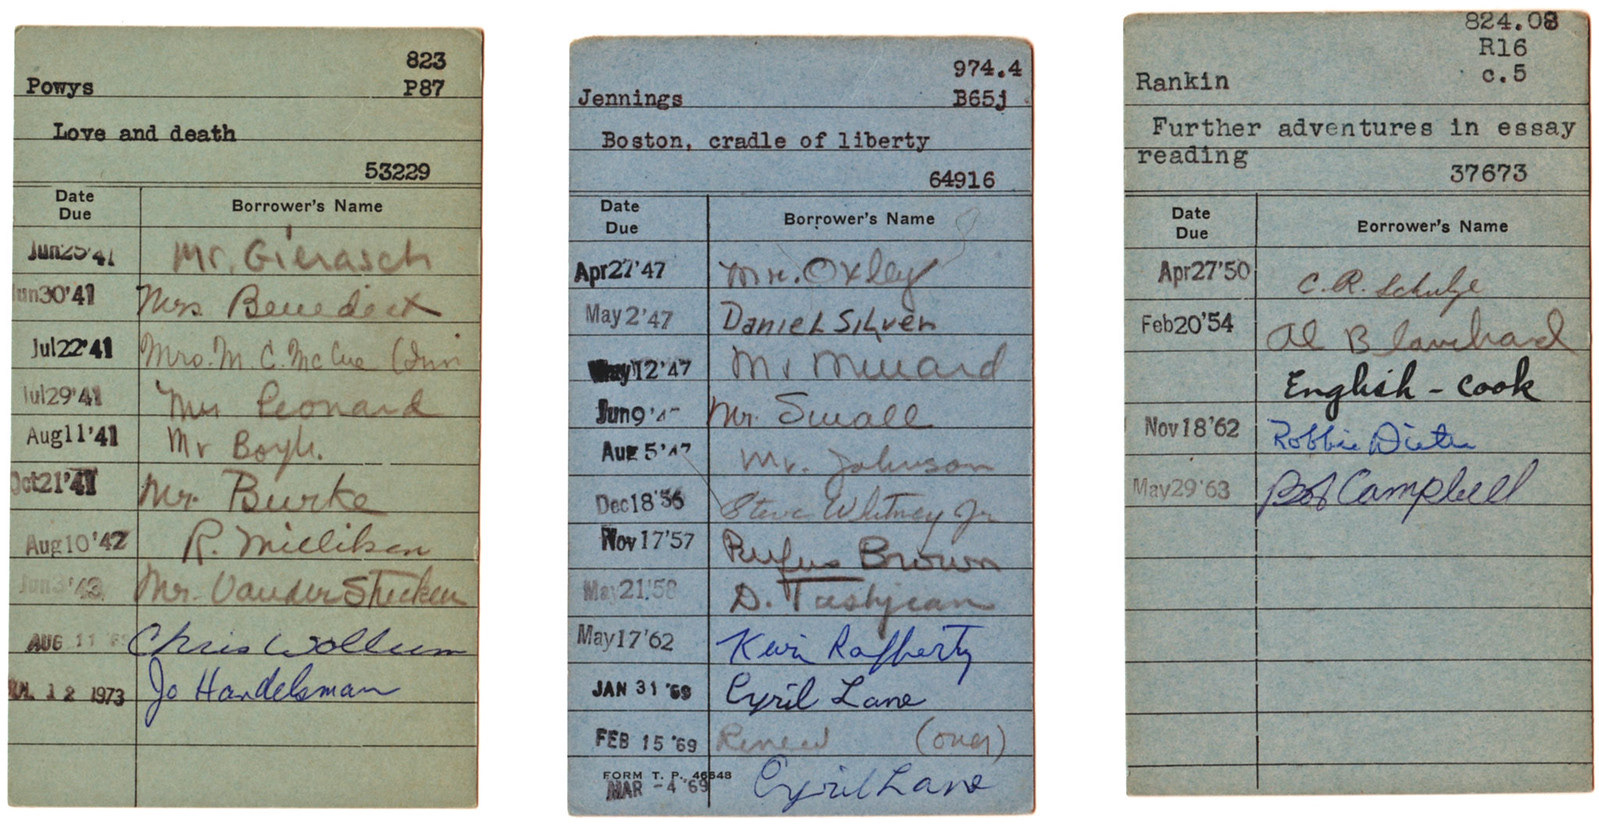 823
Powys P87
Love and death
53229
Date Due Borrower's Name
Jun25'41 Mr. Gierasch
Jun30'41 Mrs Benedict
Jul22'41 Mrs. M. C. McCue
Jul29'41 Mrs Leonard
Aug11'41 Mr Boyle.
Oct21'41 Mr. Burke
Aug10'42 R. Milliken
Jun3'43 Mr. Vander Stucken
AUG 11 Chris Wollum
12 1973 Jo Handelsman
974.4
Jennings B65j
Boston, cradle of liberty
64916
Date Due Borrower's Name
Apr27'47 Mr. Oxley
May2'47 Daniel Silver
May12'47 Mr Millard
Jun9'4 Mr. Small
Aug 5'47 Mr. Johnson
Dec18'56 Steve Whitney Jr
Nov17'57 Rufus Brown
May21'58 D. Tashjean
May17'62 Kevin Rafferty
JAN 31 '69 Cyril Lane
FEB 15 '69 Renew (over)
FORM T. P. 46548
MAR -4 '69 Cyril Lane
824.08
R16
Rankin c.5
Further adventures in essay
reading
37673
Date Due Borrower's Name
Apr27'50 C. R. Schulze
Feb20'54 Al Blanchard
English - Cook
Nov18'62 Robbie Dieter
May29'63 Bob Campbell